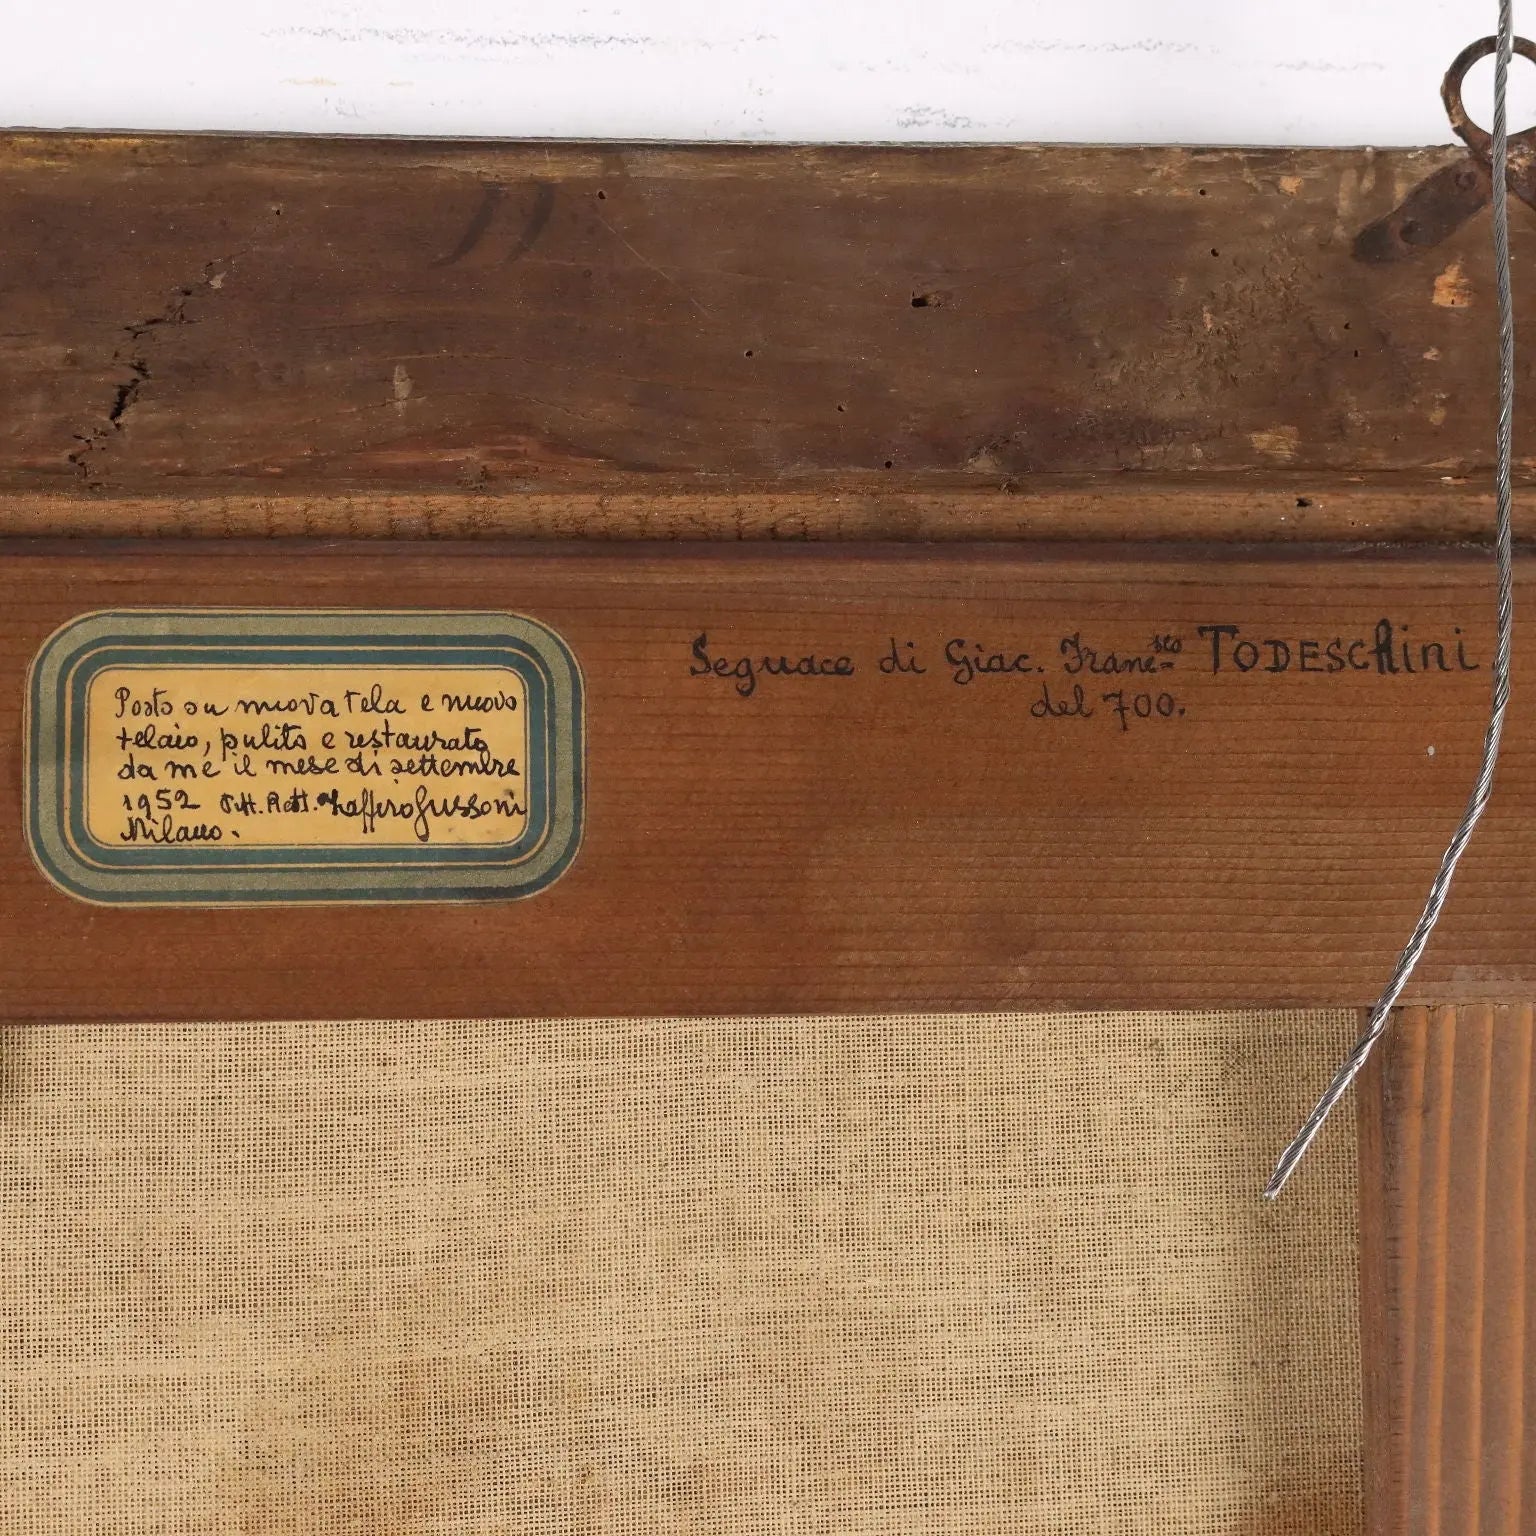 Posto su nuova tela e nuovo
telaio, pulito e restaurato
da me il mese di settembre
1952 Pitt. Rest. Zaffiro Gussoni
Milano.
Seguace di Giac. Franc.sco TODESCHINI
del 700.